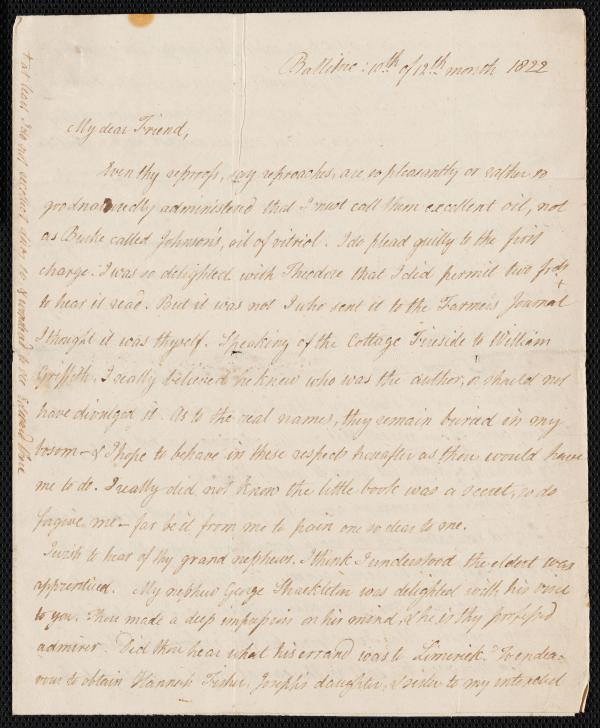 Ballitore: 10th of 12th month 1822
My dear Friend,
Even thy reproofs, say reproaches, are so pleasantly or rather so
goodnaturedly administered that I must call them excellent oil, not
as Burke called Johnson's, oil of vitriol. I do plead guilty to the first
charge. I was so delighted with Theodore that I did permit two
to hear it read. But it was not I who sent it to the Farmers Journal
I thought it was thyself. Speaking of the Cottage Fireside to William
Griffith, I really believed he knew who was the author, or should not
have divulged it. As to the real names, they remain buried in my
bosom - & I hope to behave in these respects hereafter as thou would have
me to do. I really did not know the little book was a secret, so do
forgive me - far be it from me to pain one so dear to me.
I wish to hear of thy grand nephews. I think I understood the eldest was
apprenticed. My nephew George Shackleton was delighted with his visit
to you. Thou made a deep impression on his mind, & he is thy professed
admirer. Did thou hear what his errand was to Limerick? To endea-
vour to obtain Hannah Fisher, Joseph's daughter, & sister to my
+ at least I do not recollect doing so &